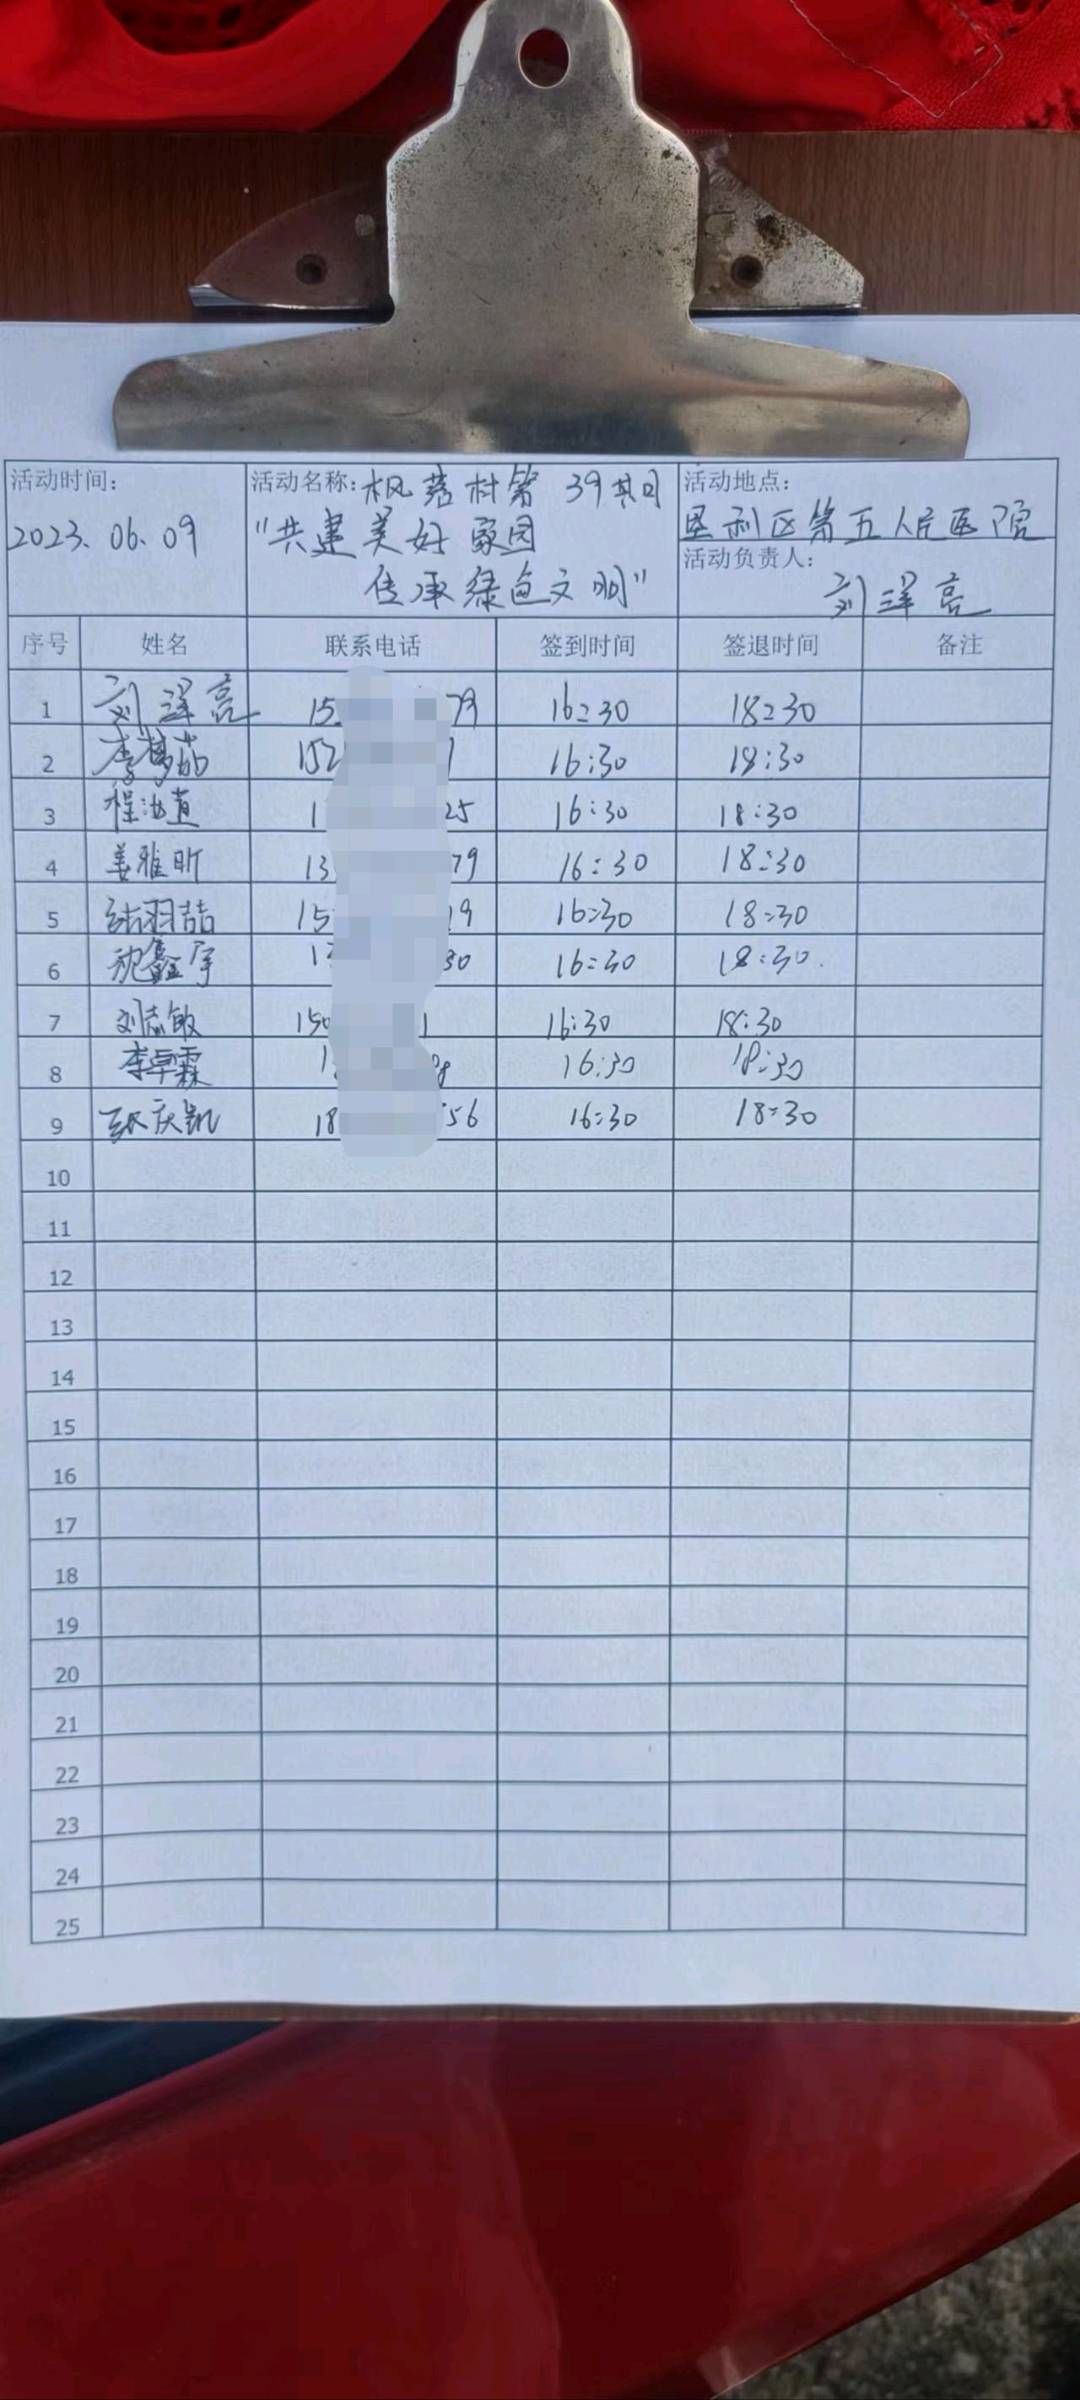 活动时间: 活动名称: 枫落村第39期 活动地点:
2023.06.09 "共建美好家园 垦利区第五人民医院
传承绿色文明" 活动负责人:
刘泽亮
序号 姓名 联系电话 签到时间 签退时间 备注
1 刘泽亮 15 79 16:30 18:30
2 李梦茹 152 16:30 18:30
3 程 1 25 16:30 18:30
4 姜雅昕 13 79 16:30 18:30
5 羽喆 15 19 16:30 18:30
6 鑫宇 1 30 16:30 18:30.
7 刘志敏 150 1 16:30 18:30
8 李卓霖 1 16:30 18:30
9 张庆凯 18 56 16:30 18:30
10
11
12
13
14
15
16
17
18
19
20
21
22
23
24
25